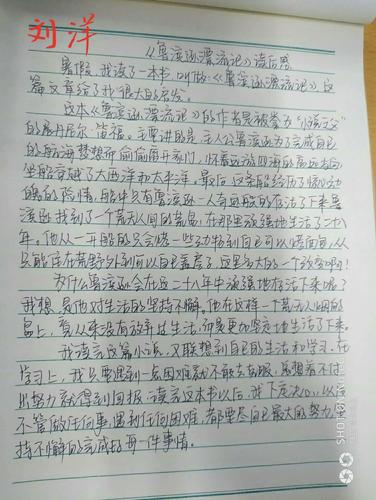 刘洋
《鲁滨逊漂流记》读后感
暑假,我读了一本书,叫做《鲁滨逊漂流记》,这
篇文章给了我很大的启发。
这本《鲁滨逊漂流记》的作者是被誉为“小说之父”
的展丹尼尔·笛福。主要讲的是:主人公鲁滨逊为了完成自己
的航海梦想而偷偷离开家门,怀着远游四海的高远志向,
坐船穿越了大西洋和太平洋。最后,这条船经历了惊心动
魄的险情,船中只有鲁滨逊一人奇迹般的存活了下来。鲁
滨逊找到了一个荒无人间的荒岛,在那里顽强地生活了二十八
年。他从一开始的只会 一些动物到自己可以 面包,从
只能住在荒野外到可以自己盖房子,这是多大的一个改变啊!
为什么鲁滨逊会在这二十八年中顽强地存活下来呢?
我想,是他对生活的坚持不懈。他在这样一个荒无人烟的
岛上,看从来没有放弃过生活,而是更加坚定地生活了下来。
我读完这篇小说,又联想到自己的生活和学习。在
学习上,我只要遇到一点困难就不敢去克服,总想着不付
出努力就得到回报。读完这本书以后,我下定决心,以后
不管做任何事,遇到任何困难,都要尽自己最大的努力,坚
持不懈的完成好每一件事情。
SHOT ON